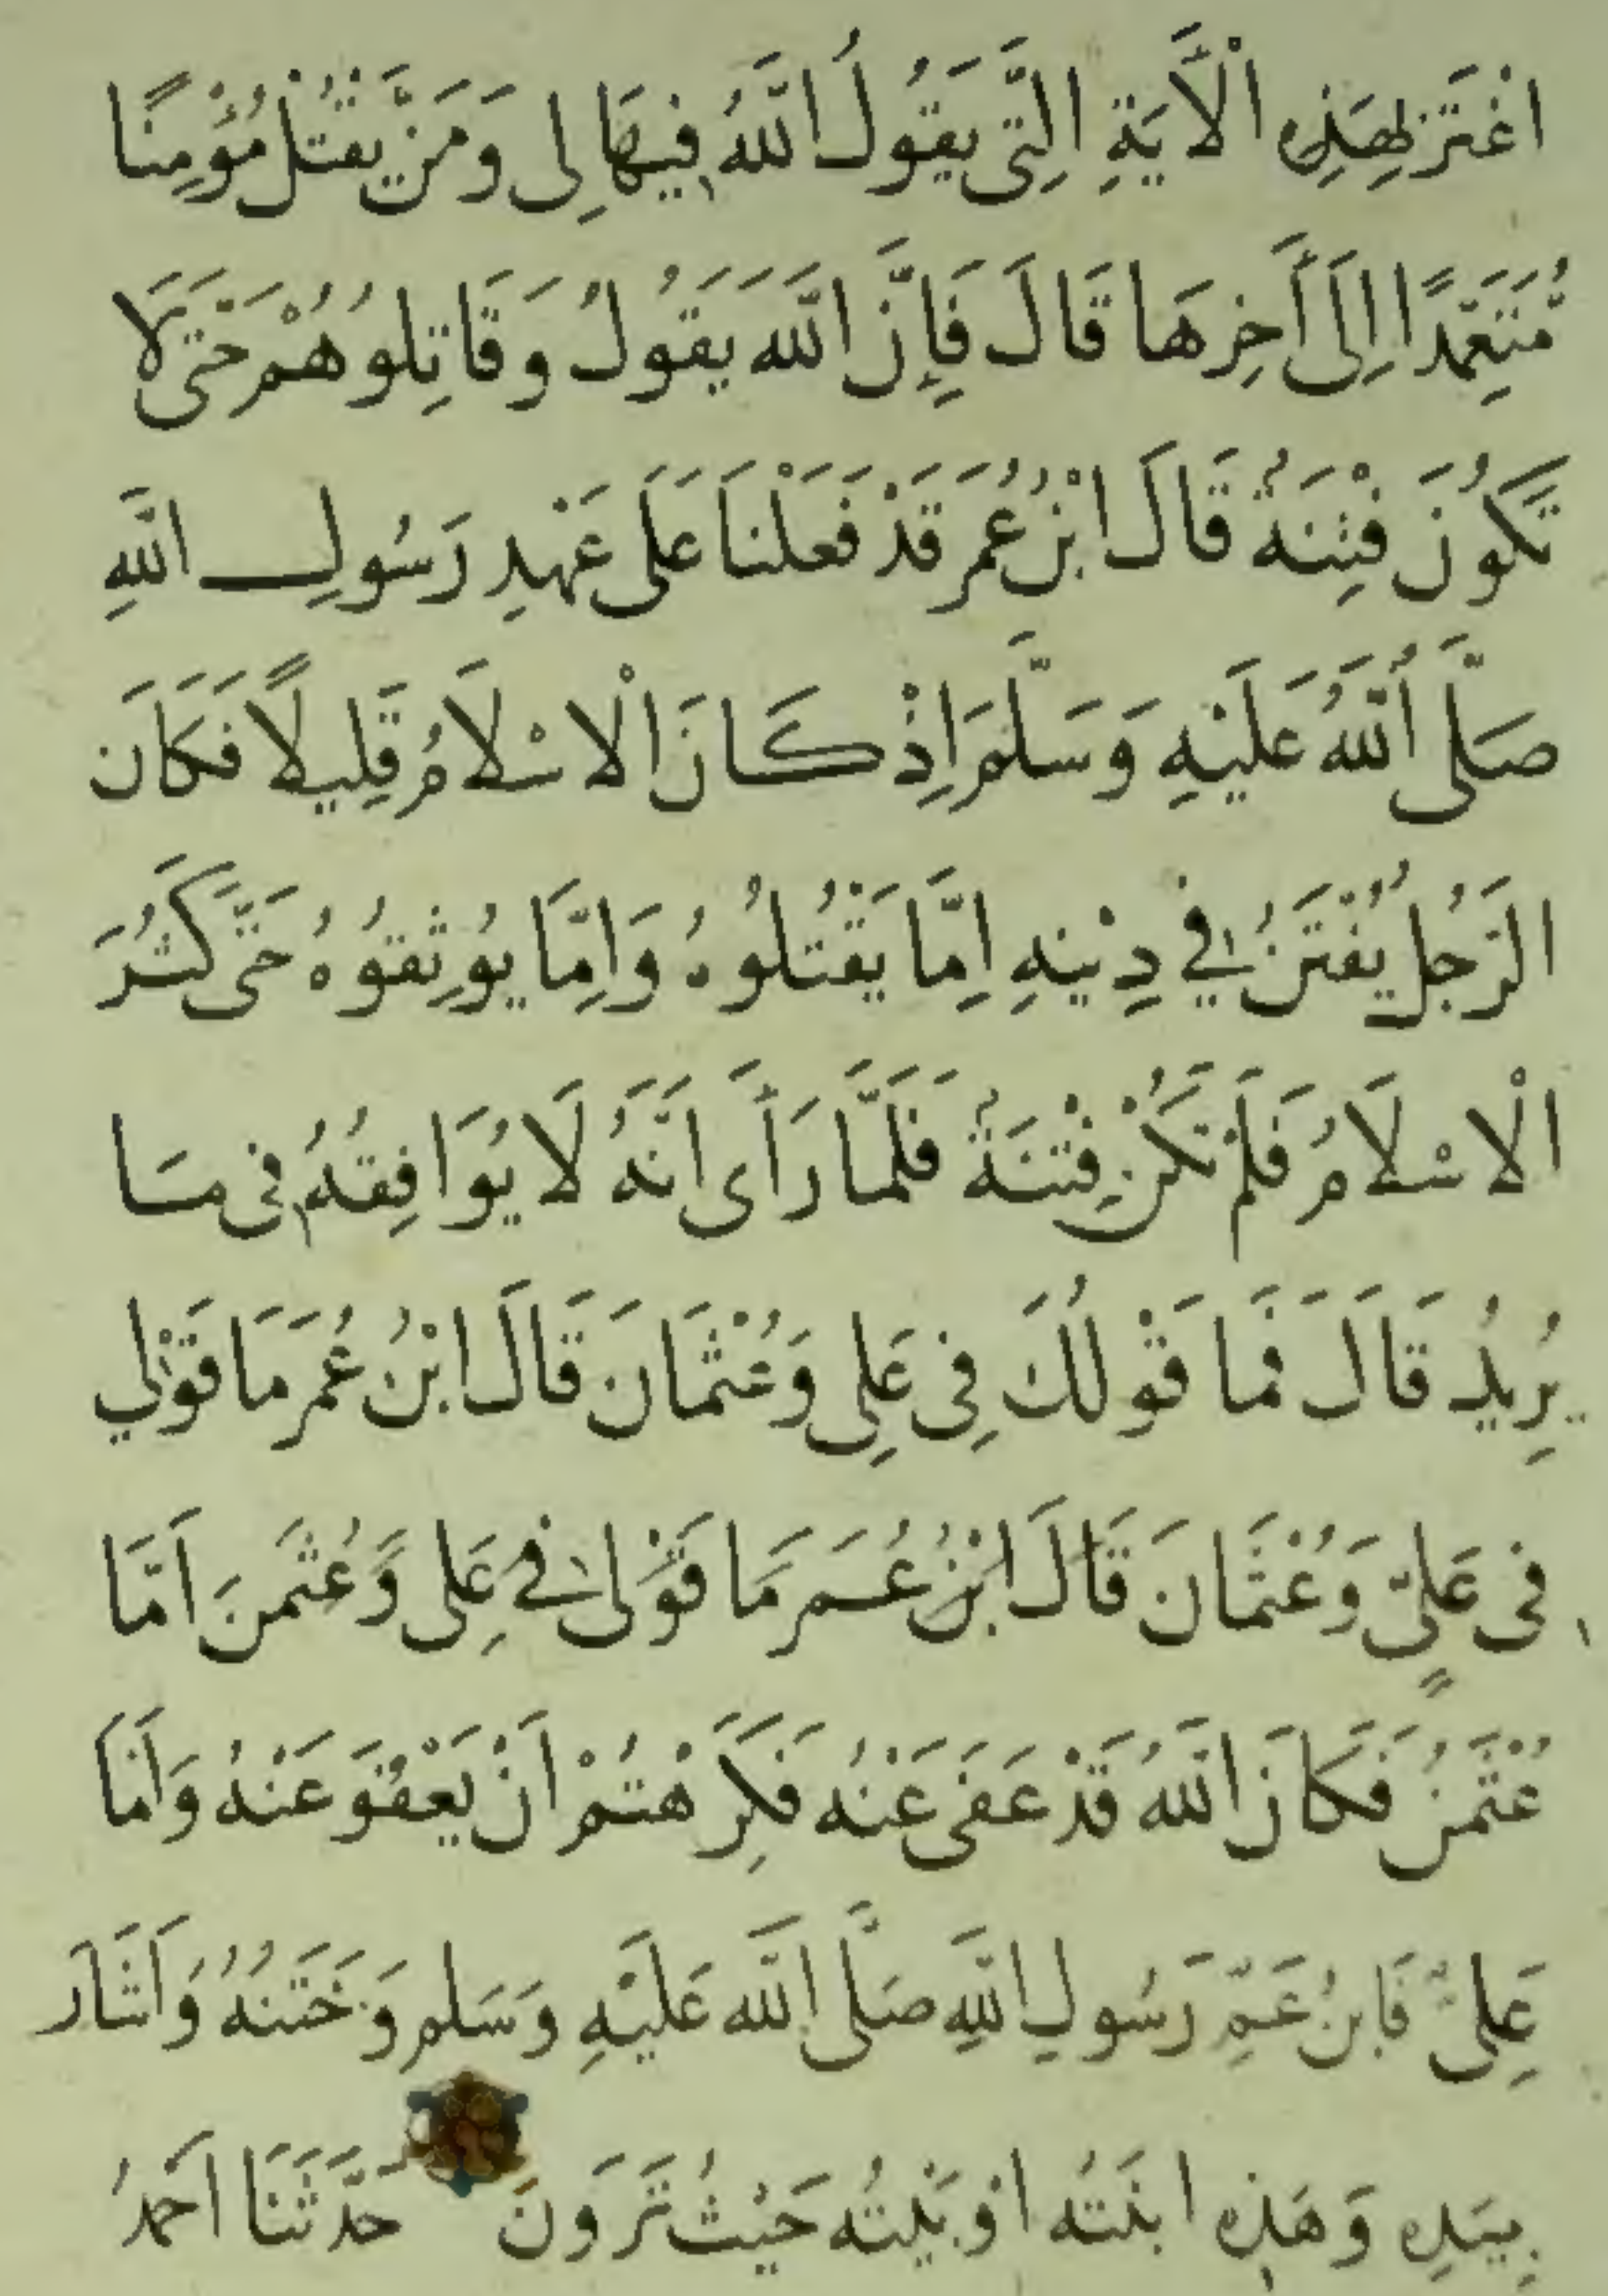 اغْتَرَّ بِهَذِهِ الْأَيَةِ الَّتِى يَقُولُ اللَّهُ فِيهَا لِى وَمَنْ يَّقْتُلْ مُؤْمِنًا
مُّتَعَمِّدًا إِلَى أَخِرِهَا قَالَ فَإِنَّ اللَّهَ يَقُولُ وَقَاتِلُوهُمْ حَتَّى لَا
تَكُونَ فِتْنَةٌ قَالَ ابْنُ عُمَرَ قَدْ فَعَلْنَا عَلَى عَهْدِ رَسُولِ اللَّهِ
صَلَّى اللَّهُ عَلَيْهِ وَسَلَّمَ إِذْ كَانَ الْاسْلَامُ قَلِيلًا فَكَانَ
الرَّجُلُ يُفْتَنُ فِي دِيْنِهِ اِمَّا يَقْتُلُوهُ وَاِمَّا يُوثِقُوُهُ حَتَّى كَثُرَ
الْاسْلَامُ فَلَمْ تَكُنْ فِتْنَةٌ فَلَمَّا رَأَى اَنَّهُ لَا يُوَافِقُهُ فِى مَا
يُرِيدُ قَالَ فَمَا قَوْلُكَ فِى عَلِى وَعُثْمَانَ قَالَ ابْنُ عُمَرَ مَا قَوْلِي
فِى عَلِىٍّ وَعُثْمَانَ قَالَ ابْنُ عُمَرَ مَا قَوْلِى فِى عَلِى وَّعُثْمنَ اَمَّا
عُثْمنُ فَكَانَ اللَّهُ قَدْ عَفَى عَنْهُ فَكَرِهْتُمْ اَنْ يَعْفُوَ عَنْهُ وَاَمَّا
عَلِىٌّ فَابنُ عَمِّ رَسُولِ اللَّهِ صَلَّى اللَّه عَلَيْهِ وَسَلم وَخَتَنُهُ وَاَشَارَ
بِيَدِهِ وَهَذِهِ ابنَتُه اوْ بَيْتُه حَيْثُ تَرَوْنَ حَدَّثَنَا اَحمدُ